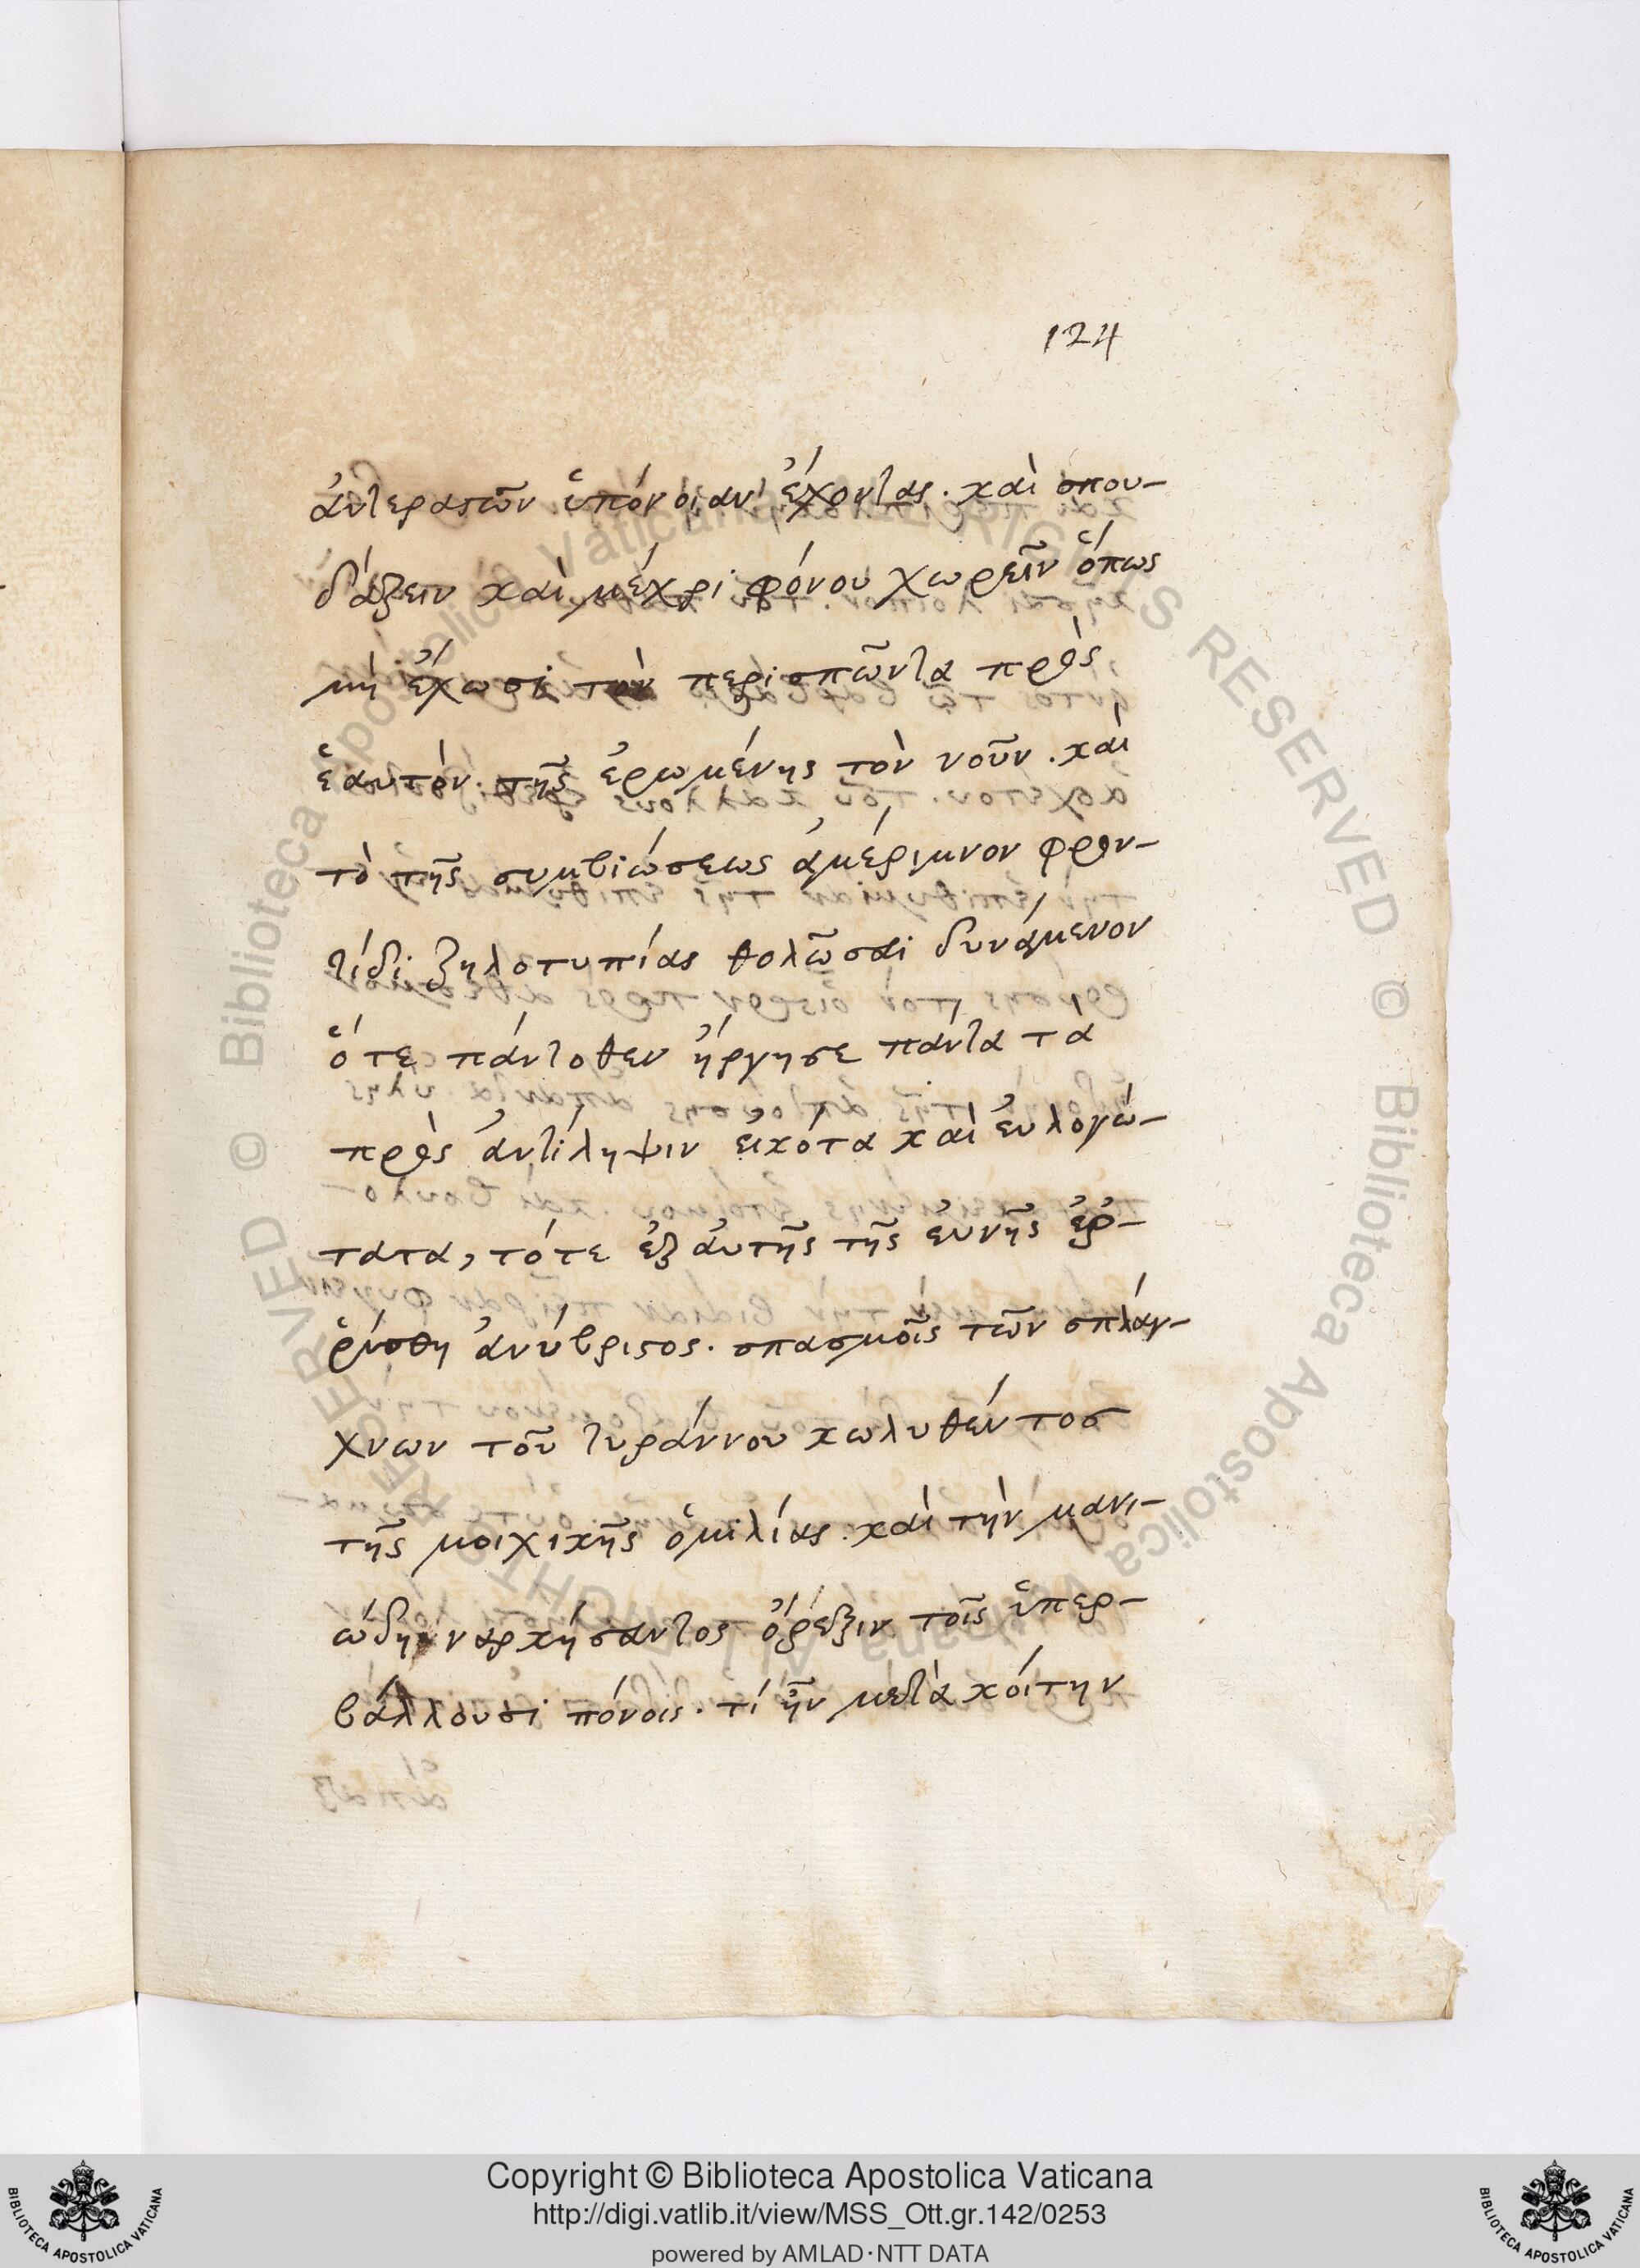 124
ἀντεραστῶν ὑπόνοιαν ἔχοντας. καὶ σπου-
δάζειν καὶ μέχρι φόνου χωρεῖν ὅπως
μὴ ἔχωσι τὸν περισπῶντα πρὸς
ἑαυτὸν τῆς ἐρωμένης τὸν νοῦν. καὶ
τὸ τῆς συμβιώσεως ἀμέριμνον φρον-
τίδι ζηλοτυπίας θολῶσαι δυνάμενον
ὅτε πάντοθεν ἤργησε πάντα τὰ
πρὸς ἀντίληψιν εἰκότα καὶ εὐλογώ-
τατα, τότε ἐξ ἀυτῆς τῆς ἐυνῆς ἐῤ-
ῥύσθη ἀνύβριστος. σπασμοῖς τῶν σπλάγ-
χνων τοῦ τυράννου κωλυθέντος
τῆς μοιχικῆς ὁμιλίας. καὶ τὴν μανι-
ώδη ναρκήσαντος ὄρεξιν τοῖς ὑπερ-
βάλλουσι πόνοις. τί ἦν μετὰ κοίτην
Copyright © Biblioteca Apostolica Vaticana
http://digi.vatlib.it/view/MSS_Ott.gr.142/0253
powered by AMLAD·NTT DATA
BIBLIOTECA APOSTOLICA VATICANA
BIBLIOTECA APOSTOLICA VATICANA